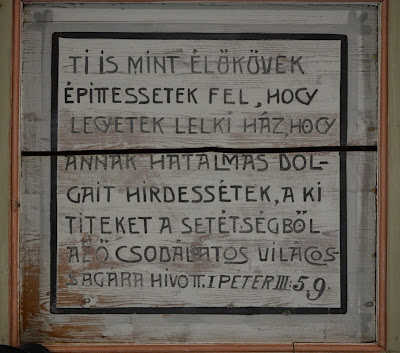 TI IS MINT ÉLŐKÖVEK
ÉPITTESSETEK FEL, HOGY
LEGYETEK LELKI HÁZ, HOGY
ANNAK HATALMAS DOL-
GAIT HIRDESSÉTEK, A KI
TITEKET A SETÉTSÉGBŐL
AZ Ő CSODÁLATOS VILÁGOS-
SAGÁRA HÍVOTT. I PÉTER III: 5,9.